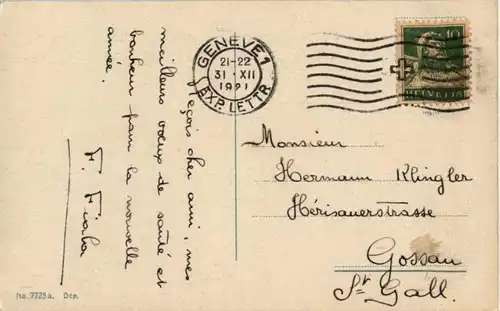 Reçois cher ami, mes
meilleurs voeux de santé et
bonheur pour la nouvelle
année.
GENÈVE·1
21-22
31·XII
1921
EXP. LETTR.
10
HELVETIA
Monsieur
Hermann Klingler
Hérisauerstrasse
Gossau
St Gall.
No. 7725a. Dép.